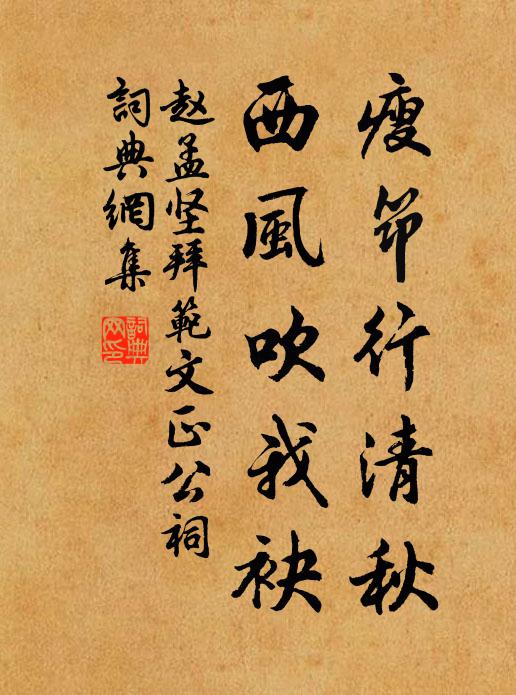 瘦筇行清秋
西風吹我袂
赵孟坚拜範文正公祠
詞典網集
詞典网印